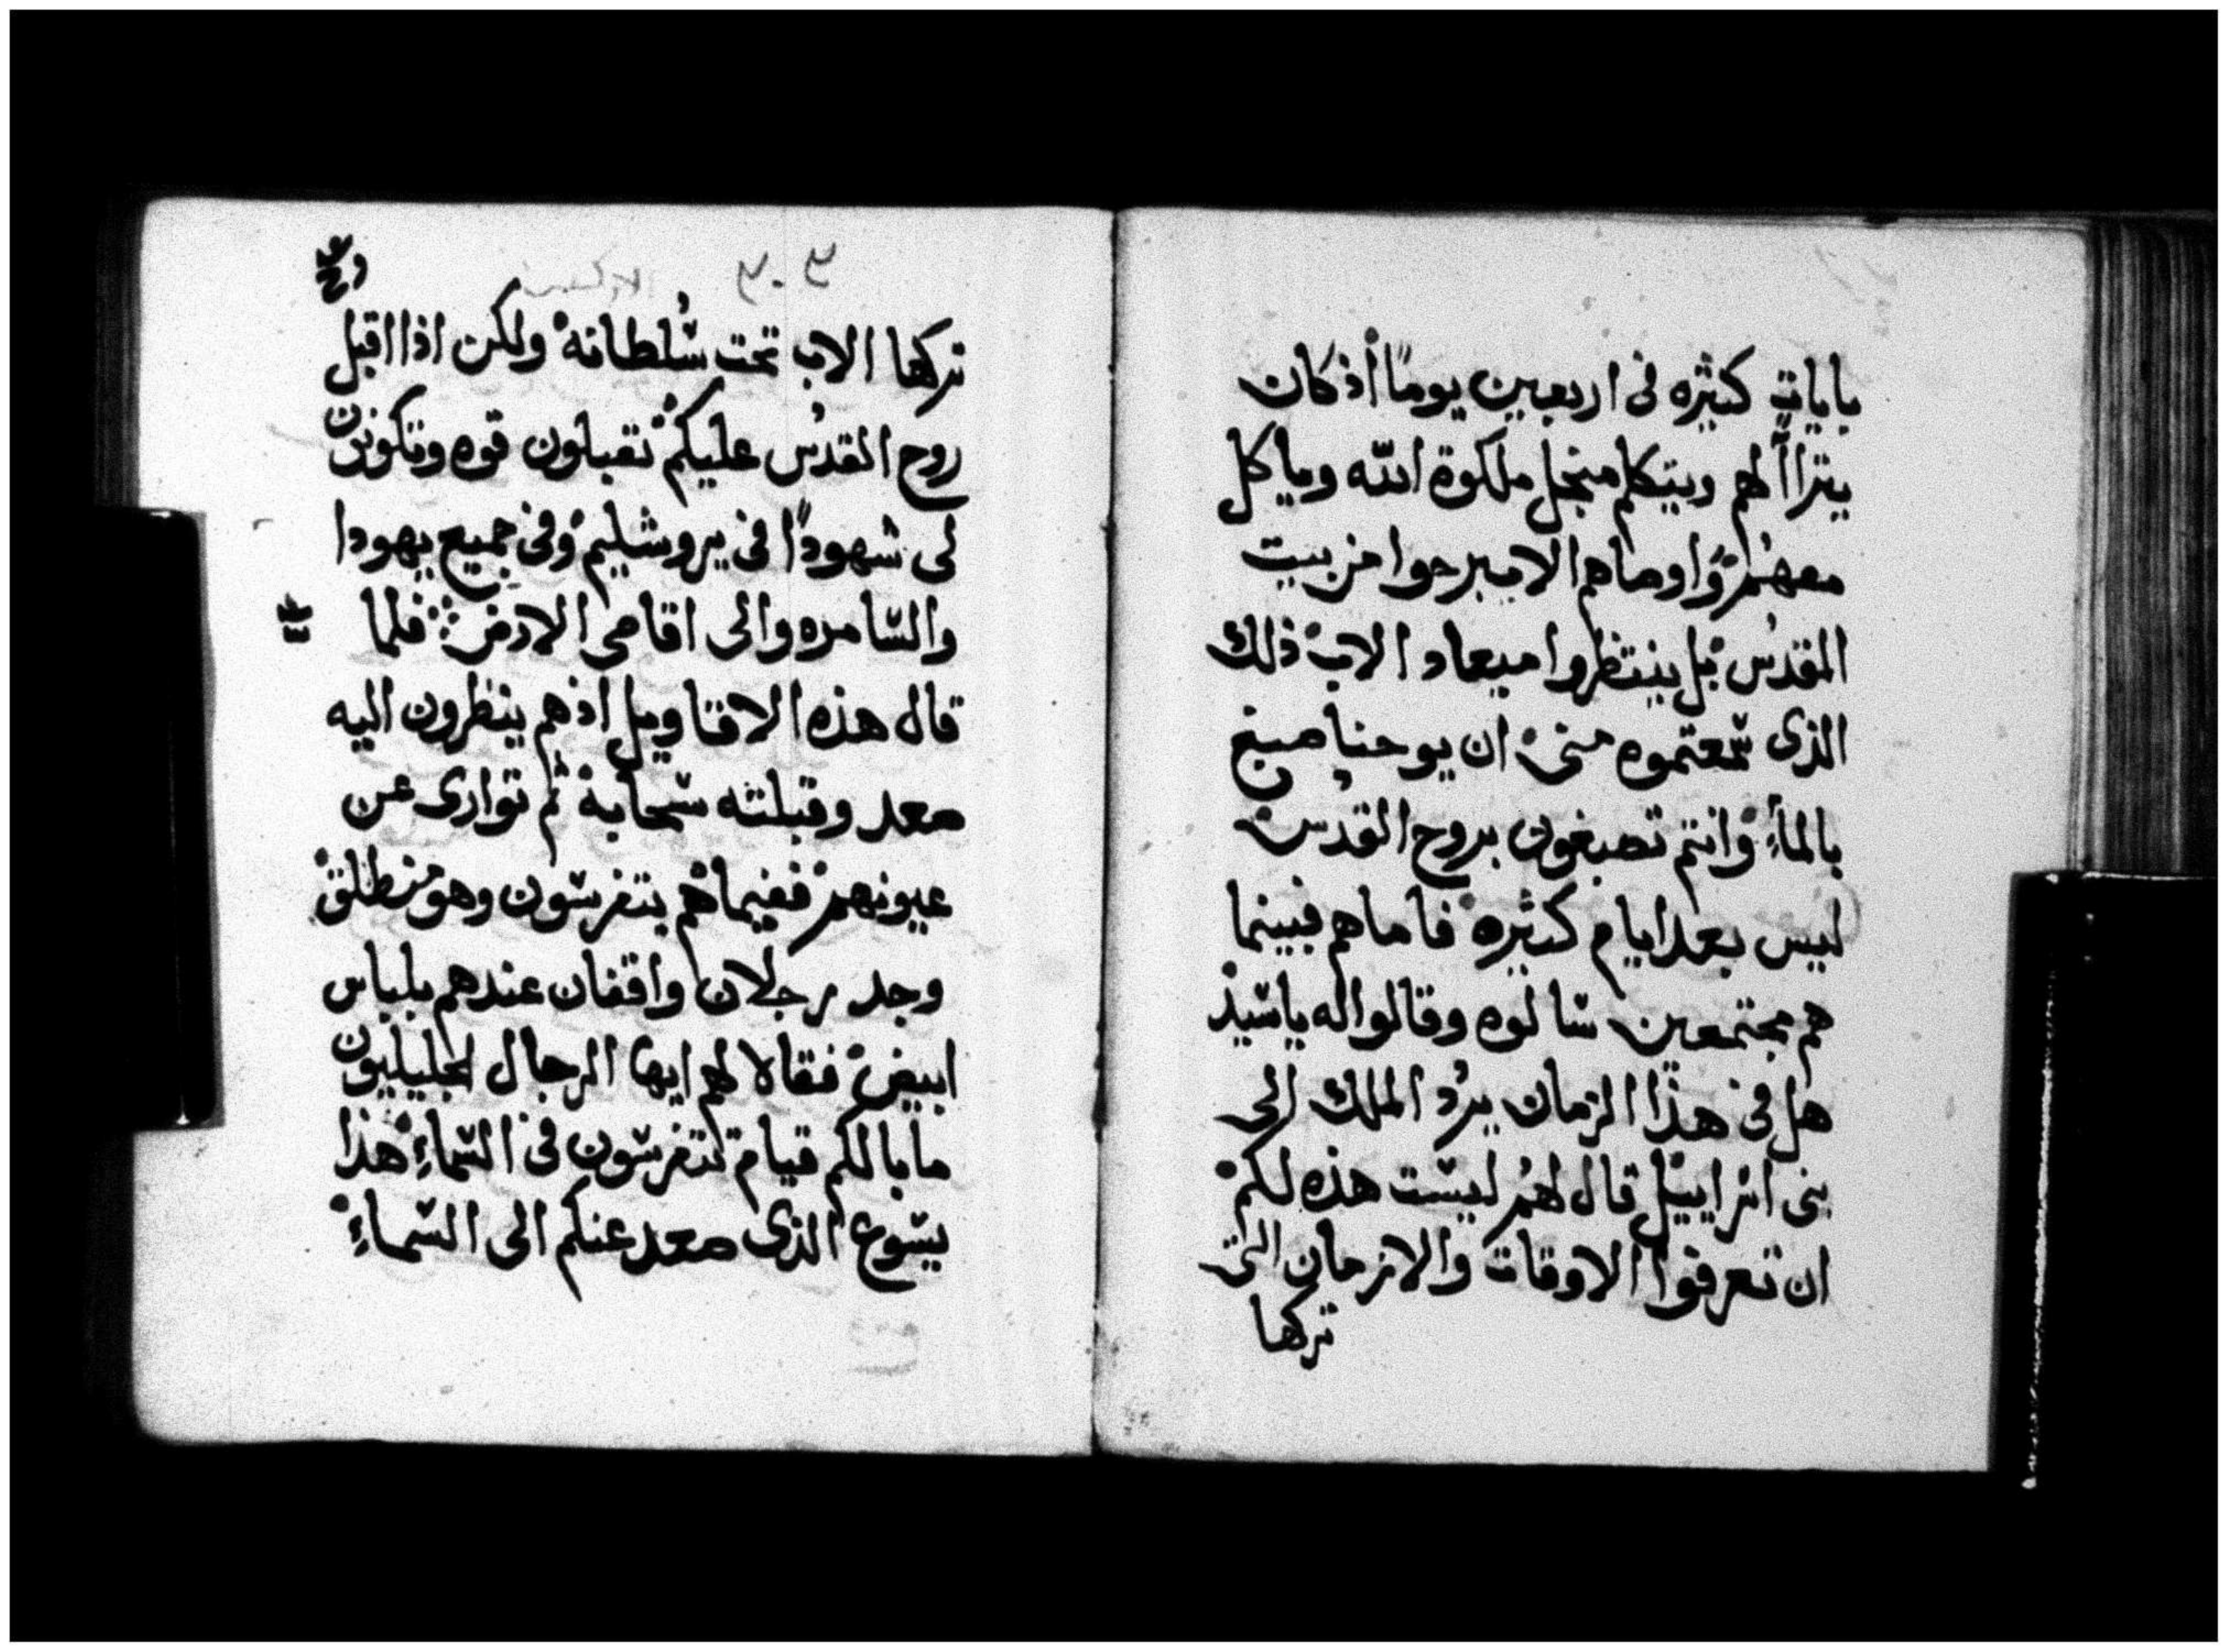 باياتٍ كثيره فى اربعين يومًا أذ كان
يتراأ لهم ويتكلم منجل ملكوة الله وياكل
معهُمْ وَاوصاهم الا يبرحوا من بيت
المقدس بل ينتظروا ميعاد الاب ذلك
الذى سمعتموه منى ان يوحنا صبغ
بالماءِ وانتم تصبغون بروح القدس
ليس بعد ايام كثيره فاماهم فبينما
هم مجتمعين سالوه وقالوا له ياسيد
هل فى هذا الزمان يردُ الملك الى
بنى اسراييل قال لهُم ليست هذه لكم
ان تعرفوا الاوقات والازمان التى
تركها
تركها الاب تحت سُلطانه ولكن اذا اقبل
روح القدُس عليكم تقبلون قوه وتكونون
لى شهودًا فى يروشليم وفى جميع يهودا
والسامره والى اقاصى الارض فلما
قال هذه الاقاويل اذهم ينظرون اليه
صعد وقبلته سحابة ثم توارى عن
عيونهم ففيماهم يتفرسون وهو منطلق
وجد رجلان واقفان عندهم بلباس
ابيض فقالا لهم ايها الرجال الجليليون
ما بالكم قيام تتفرسون فى السماءِ هذا
يسوع الذى صعد عنكم الى السماءِ